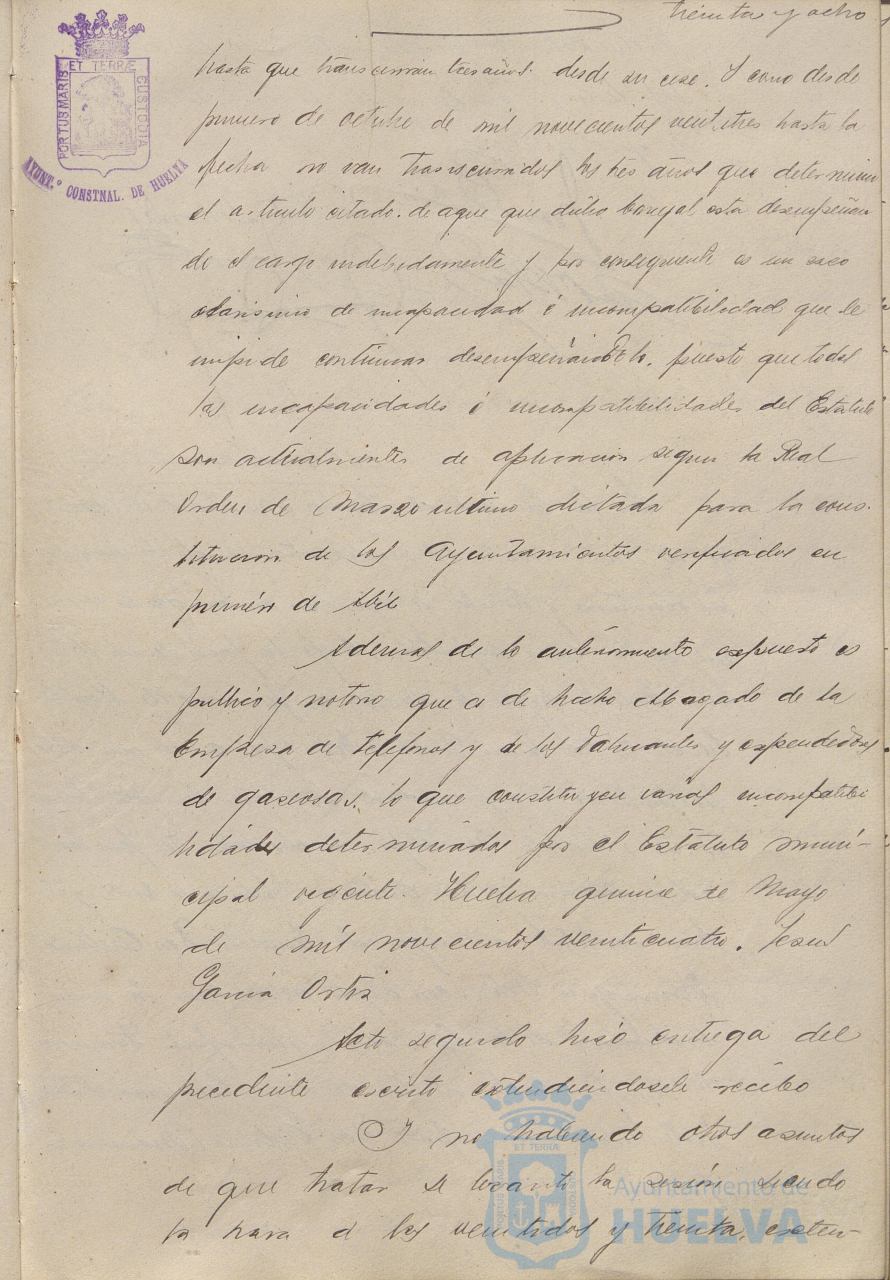 treinta y ocho
ET TERRÆ
PORTUS MARIS
CUSTODIA
AYUNT.º CONSTNAL. DE HUELVA
hasta que transcurran tres años desde su cese. Y como desde
primero de octubre de mil novecientos veintitres hasta la
fecha no van transcurridos los tres años que determina
el artículo citado. de aqui que dicho Concejal esta desempeñan
do el cargo indebidamente y por consiguiente es un caso
clarisimo de incapacidad é incompatibilidad que le
impide continuar desempeñandolo, puesto que todas
las incapacidades é incompatibilidades del Estatuto
son actualmente de aplicacion segun la Real
Orden de Marzo ultimo dictada para la cons-
titucion de los Ayuntamientos verificados en
primero de Abril
Ademas de lo anteriormente expuesto es
publico y notorio que es de hecho Abogado de la
Empresa de telefonos y de los fabricantes y expendedores
de gaseosas, lo que constituyen varias incompatibi
lidades determinadas por el Estatuto muni-
cipal vigente. Huelva quince de Mayo
de mil novecientos veinticuatro. Jesus
Garcia Ortiz
Acto segundo hizo entrega del
precedente escrito extendiendosele recibo
Y no habiendo otros asuntos
de que tratar se levantó la sesión siendo
la hora de las veintidos y treinta, exten-
Ayuntamiento de
HUELVA